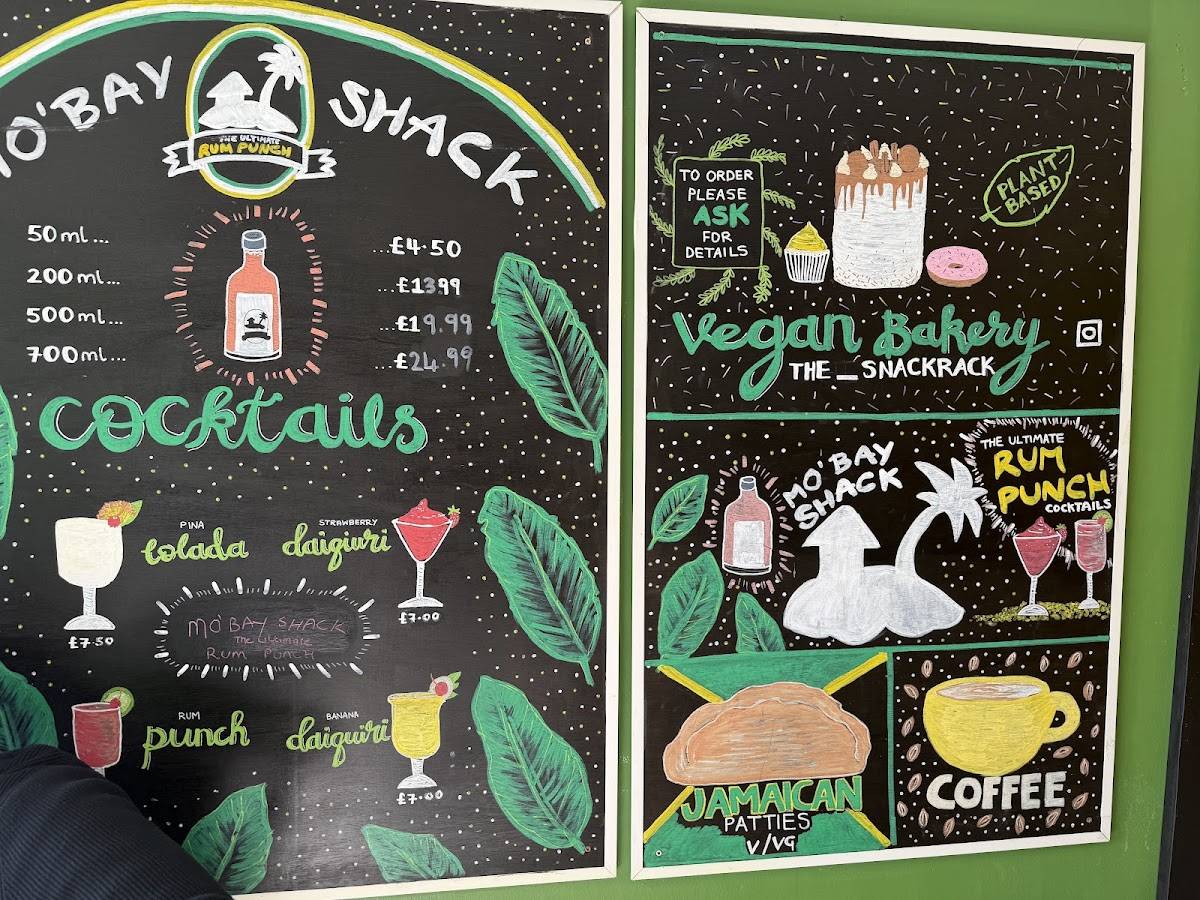 MO'BAY SHACK
THE ULTIMATE
RUM PUNCH
50ml... ...£4.50
200ml... ...£13.99
500ml... ...£19.99
700ml... ...£24.99
cocktails
PINA
Colada
£7.50
STRAWBERRY
daiqiuri
£7.00
MO'BAY SHACK
The Ultimate
RUM PUNCH
RUM
punch
BANANA
daiquiri
£7.00
TO ORDER
PLEASE
ASK
FOR
DETAILS
PLANT
BASED
Vegan Bakery
THE _ SNACKRACK
MO'BAY
SHACK
THE ULTIMATE
RUM
PUNCH
COCKTAILS
JAMAICAN
PATTIES
V/VG
COFFEE